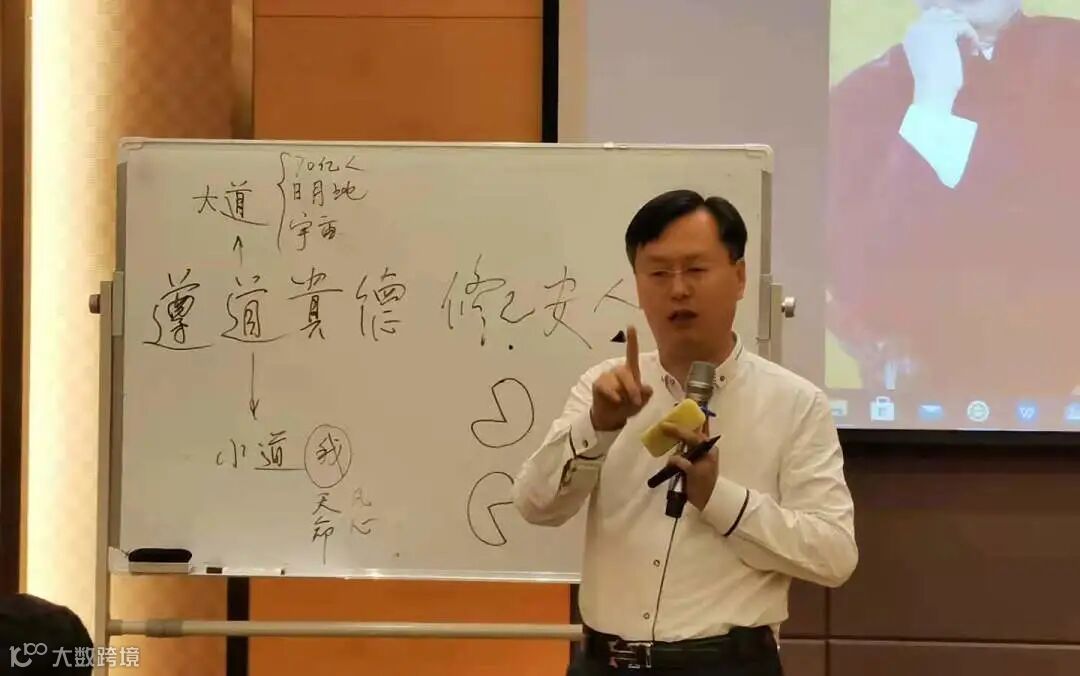 大道
70亿人
日月地
宇宙
遵道貴德 修己安人
小道 我
天命
凡心
大数跨境